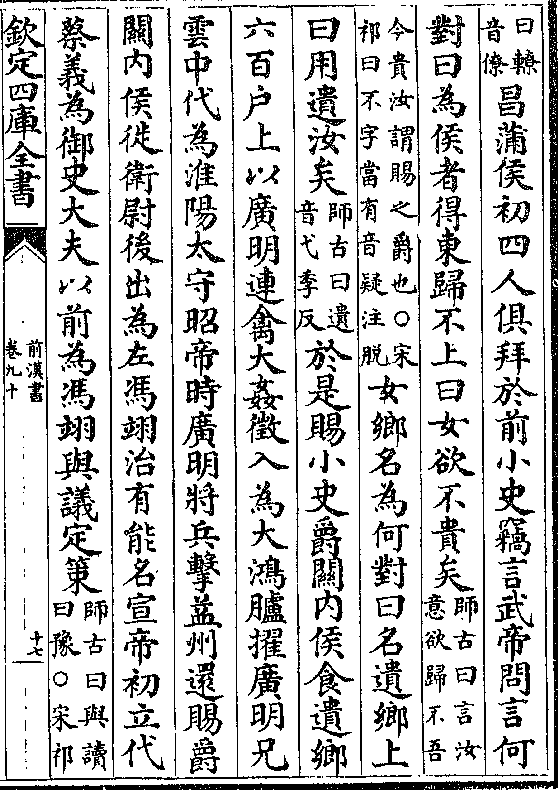 曰轑
音僚
昌蒲侯初四人俱拜於前小史竊言武帝問言何
對曰為侯者得東歸不上曰女欲不貴矣
師古曰言汝
意欲歸不吾
今貴汝謂賜之爵也○宋
祁曰不字當有音疑注脱
女鄉名為何對曰名遺鄉上
曰用遺汝矣
師古曰遺
音弋季反
於是賜小史爵關内侯食遺鄉
六百户上以廣明連禽大姦徵入為大鴻臚擢廣明兄
雲中代為淮陽太守昭帝時廣明將兵擊益州還賜爵
關内侯徙衛尉後出為左馮翊治有能名宣帝初立代
蔡義為御史大夫以前為馮翊與議定策
師古曰與讀
曰豫○宋祁
欽定四庫全書
前漢書
卷九十
十七